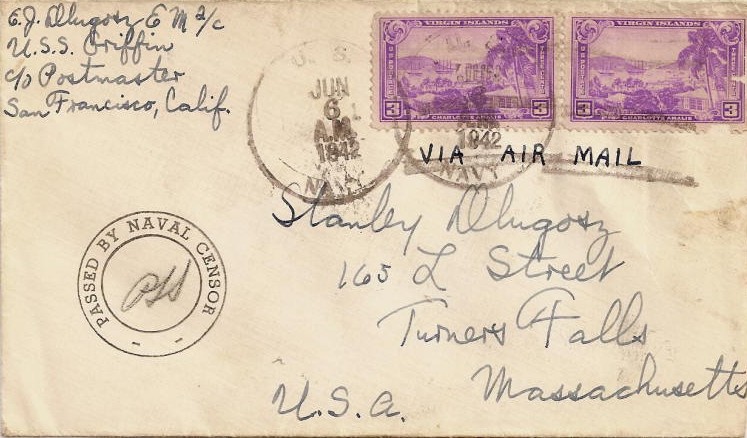 E.J. Dlugosz EM 2/c
U.S.S. Griffin
c/o Postmaster
San Francisco, Calif.
U.S.
JUN
6
A.M.
1942
NAVY
VIRGIN ISLANDS
U.S. POSTAGE
THREE CENTS
3
3
CHARLOTTE AMALIE
VIRGIN ISLANDS
U.S. POSTAGE
THREE CENTS
3
3
CHARLOTTE AMALIE
1942
NAVY
VIA AIR MAIL
PASSED BY NAVAL CENSOR
Stanley Dlugosz
165 L Street
Turners Falls
Massachusetts
U.S.A.